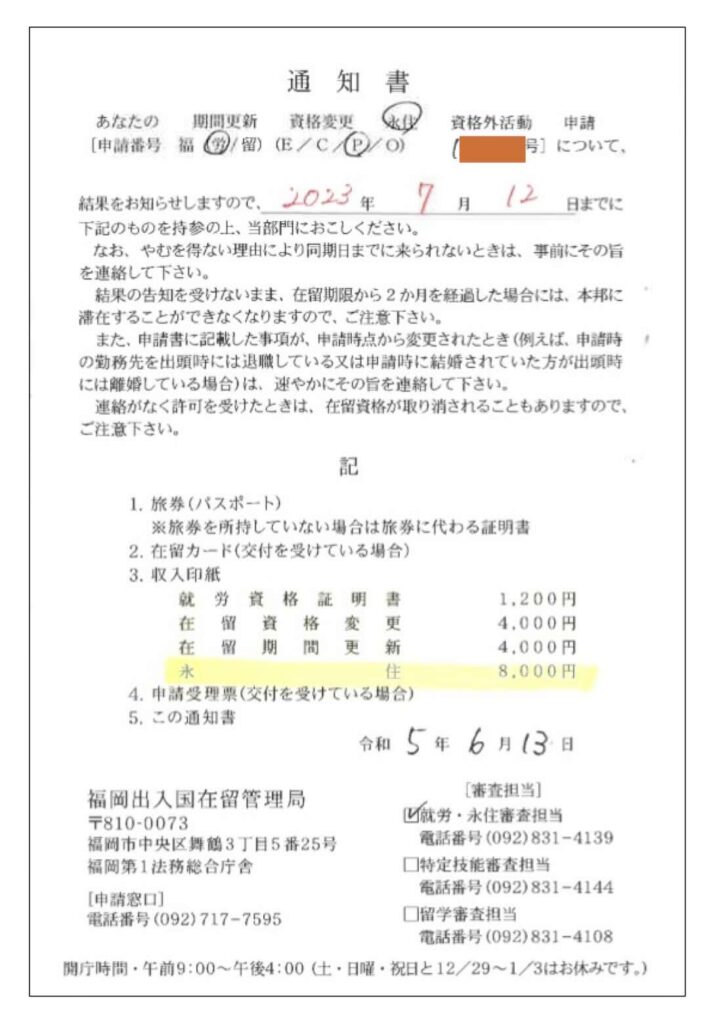 通知書
あなたの 期間更新 資格変更 永住 資格外活動 申請
[申請番号 福(労/留)(E/C/P/O) 号]について、
結果をお知らせしますので、2023年 7月 12日までに
下記のものを持参の上、当部門におこしください。
なお、やむを得ない理由により同期日までに来られないときは、事前にその旨
を連絡して下さい。
結果の告知を受けないまま、在留期限から2か月を経過した場合には、本邦に
滞在することができなくなりますので、ご注意下さい。
また、申請書に記載した事項が、申請時点から変更されたとき(例えば、申請時
の勤務先を出頭時には退職している又は申請時に結婚されていた方が出頭時
には離婚している場合)は、速やかにその旨を連絡して下さい。
連絡がなく許可を受けたときは、在留資格が取り消されることもありますので、
ご注意下さい。
記
1. 旅券(パスポート)
※旅券を所持していない場合は旅券に代わる証明書
2. 在留カード(交付を受けている場合)
3. 収入印紙
就労資格証明書 1,200円
在留資格変更 4,000円
在留期間更新 4,000円
永住 8,000円
4. 申請受理票(交付を受けている場合)
5. この通知書
令和 5年 6月 13日
福岡出入国在留管理局
〒810-0073
福岡市中央区舞鶴3丁目5番25号
福岡第1法務総合庁舎
[申請窓口]
電話番号(092)717-7595
[審査担当]
☑就労・永住審査担当
電話番号(092)831-4139
□特定技能審査担当
電話番号(092)831-4144
□留学審査担当
電話番号(092)831-4108
開庁時間・午前9:00~午後4:00 (土・日曜・祝日と12/29~1/3はお休みです。)